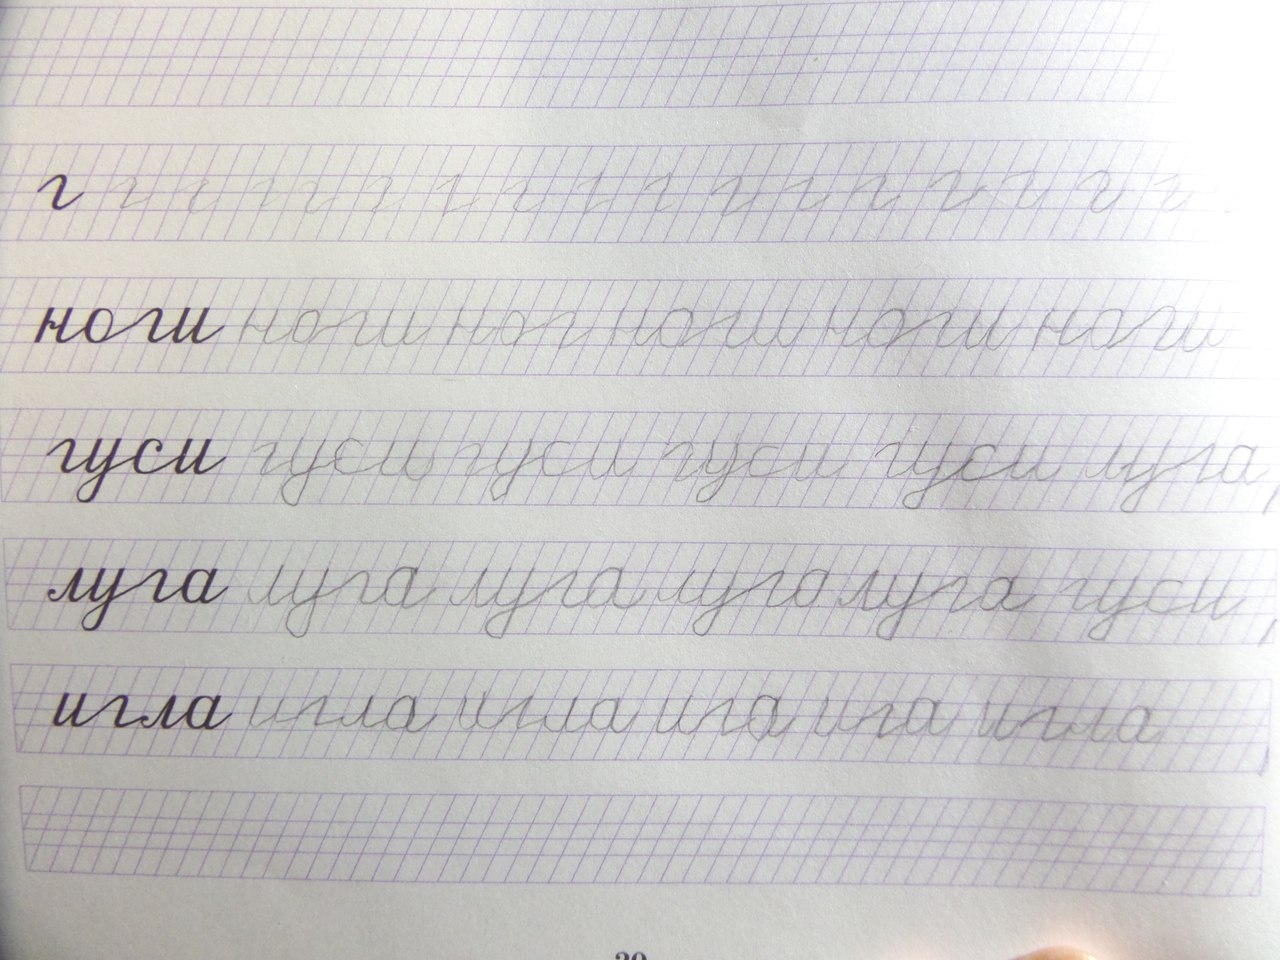 г г г г г г г г г г г г г г г г
ноги ноги ног ноги ноги ноги
гуси гуси гуси гуси гуси луга,
луга луга луга луго луга гуси,
игла игла игла ига ига игла